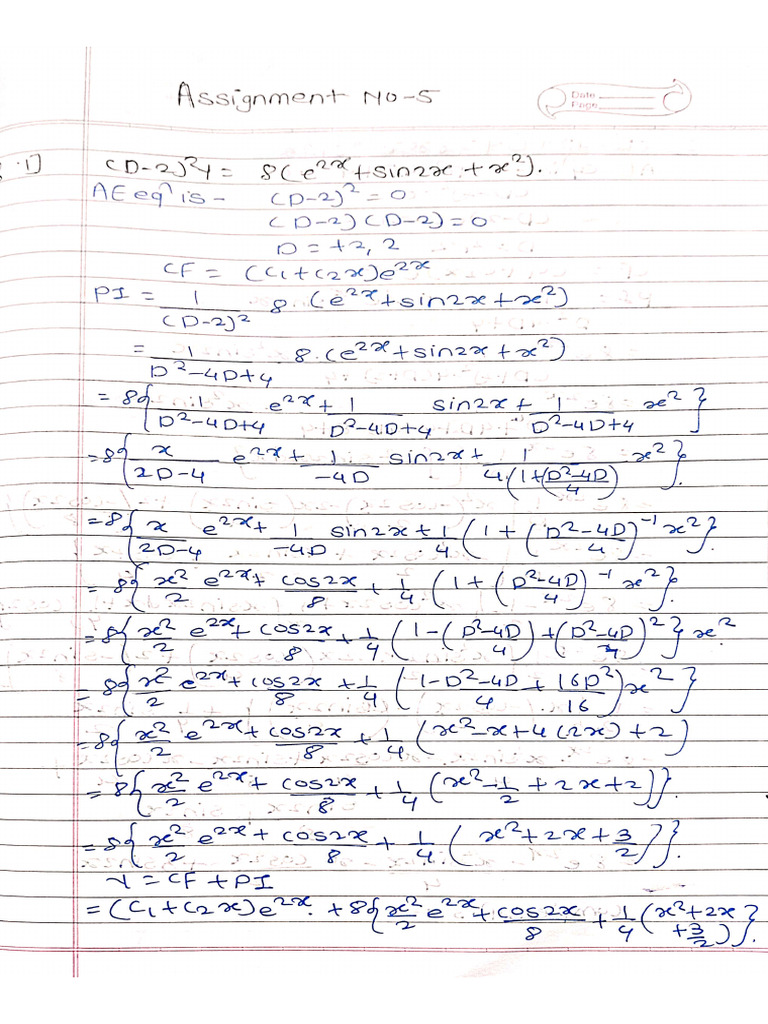 Assignment No-5
Date
Page
1] (D-2)²y = 8(e^2x + sin2x + x²).
AE eqⁿ is - (D-2)² = 0
(D-2)(D-2) = 0
D = +2, 2
CF = (C1+C2x)e^2x
PI = 1/(D-2)² 8 (e^2x + sin2x + x²)
= 1/(D²-4D+4) 8 (e^2x + sin2x + x²)
= 8{ 1/(D²-4D+4) e^2x + 1/(D²-4D+4) sin2x + 1/(D²-4D+4) x² }
= 8{ x/(2D-4) e^2x + 1/(-4D) sin2x + 1/(4(1+(D²-4D)/4)) x² }.
= 8{ x/(2D-4) e^2x + 1/(-4D) sin2x + 1/4 (1+(D²-4D)/4)^-1 x² }.
= 8{ x²/2 e^2x + cos2x/8 + 1/4 (1+(D²-4D)/4)^-1 x² }.
= 8{ x²/2 e^2x + cos2x/8 + 1/4 (1-(D²-4D)/4 + ((D²-4D)/4)² } x²
= 8{ x²/2 e^2x + cos2x/8 + 1/4 ((1-D²-4D)/4 + 16D²/16) x² }
= 8{ x²/2 e^2x + cos2x/8 + 1/4 (x²-x+4(2x)+2)
= 8{ x²/2 e^2x + cos2x/8 + 1/4 (x²-1/2+2x+2)}.
= 8{ x²/2 e^2x + cos2x/8 + 1/4 (x²+2x+3/2)}.
Y = CF + PI
= (C1+C2x)e^2x + 8{ x²/2 e^2x + cos2x/8 + 1/4 (x²+2x+3/2)}.